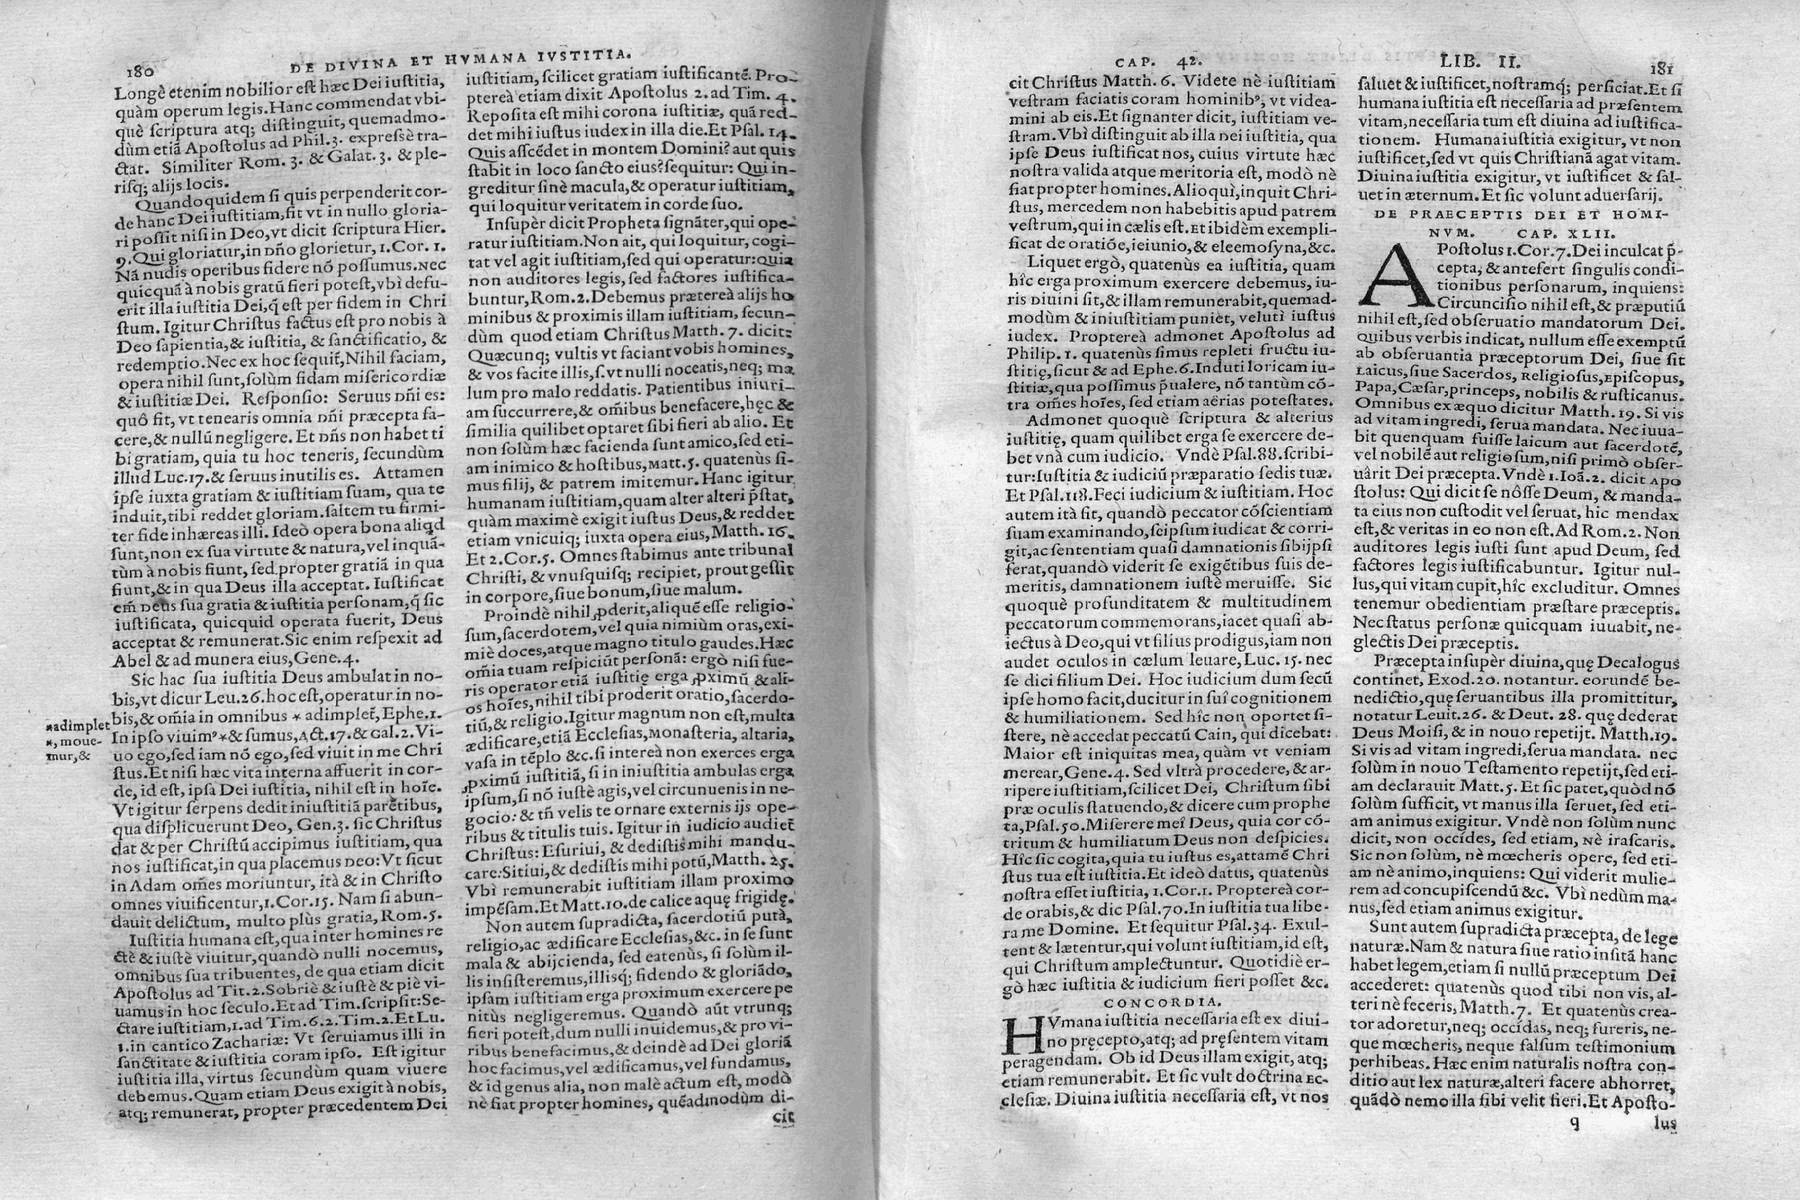 180
DE DIVINA ET HVMANA IVSTITIA.
Longè etenim nobilior est hæc Dei iustitia,
quàm operum legis. Hanc commendat vbi-
què scriptura atq; distinguit, quemadmo-
dùm etiã Apostolus ad Phil.3. expressè tra-
ctat. Similiter Rom. 3. & Galat. 3. & ple-
risq; alijs locis.
Quandoquidem si quis perpenderit cor-
de hanc Dei iustitiam, fit vt in nullo gloria-
ri possit nisi in Deo, vt dicit scriptura Hier.
9. Qui gloriatur, in dño glorietur, 1. Cor. 1.
Nã nudis operibus fidere nõ possumus. Nec
quicquã à nobis gratũ fieri potest, vbi defu-
erit illa iustitia Dei, q̃ est per fidem in Chri
stum. Igitur Christus factus est pro nobis à
Deo sapientia, & iustitia, & sanctificatio, &
redemptio. Nec ex hoc sequit̃, Nihil faciam,
opera nihil sunt, solùm fidam misericordiæ
& iustitiæ Dei. Responsio: Seruus dñi es:
quô fit, vt tenearis omnia dñi præcepta fa-
cere, & nullũ negligere. Et dñs non habet ti
bi gratiam, quia tu hoc teneris, secundùm
illud Luc.17. & seruus inutilis es. Attamen
ipse iuxta gratiam & iustitiam suam, qua te
induit, tibi reddet gloriam. saltem tu firmi-
ter fide inhæreas illi. Ideò opera bona aliqd
sunt, non ex sua virtute & natura, vel inquã-
tùm à nobis fiunt, sed propter gratiã in qua
fiunt, & in qua Deus illa acceptat. Iustificat
em̃ Deus sua gratia & iustitia personam, q̃ sic
iustificata, quicquid operata fuerit, Deus
acceptat & remunerat. Sic enim respexit ad
Abel & ad munera eius, Gene. 4.
Sic hac sua iustitia Deus ambulat in no-
bis, vt dicur Leu.26. hoc est, operatur in no-
bis, & om̃ia in omnibus * adimplet̃, Ephe. 1.
In ipso viuim⁹ *& sumus, Act. 17. & Gal. 2. Vi-
uo ego, sed iam nõ ego, sed viuit in me Chri
stus. Et nisi hæc vita interna affuerit in cor-
de, id est, ipsa Dei iustitia, nihil est in hoĩe.
Vt igitur serpens dedit iniustitiã parẽtibus,
qua displicuerunt Deo, Gen. 3. sic Christus
dat & per Christũ accipimus iustitiam, qua
nos iustificat, in qua placemus Deo: Vt sicut
in Adam om̃es moriuntur, ità & in Christo
omnes viuificentur, 1. Cor. 15. Nam si abun-
dauit delictum, multo plùs gratia, Rom. 5.
Iustitia humana est, qua inter homines re
ctè & iustè viuitur, quandò nulli nocemus,
omnibus sua tribuentes, de qua etiam dicit
Apostolus ad Tit. 2. Sobriè & iustè & piè vi-
uamus in hoc seculo. Et ad Tim. scripsit: Se-
ctare iustitiam, 1. ad Tim. 6. 2. Tim. 2. Et Lu.
1. in cantico Zachariæ: Vt seruiamus illi in
sanctitate & iustitia coram ipso. Est igitur
iustitia illa, virtus secundùm quam viuere
debemus. Quam etiam Deus exigit à nobis,
atq; remunerat, propter præcedentem Dei
*adimplet
*, moue-
mur, &
iustitiam, scilicet gratiam iustificantẽ. Pro-
ptereà etiam dixit Apostolus 2. ad Tim. 4.
Reposita est mihi corona iustitiæ, quã red-
det mihi iustus iudex in illa die. Et Psal. 14.
Quis ascẽdet in montem Domini? aut quis
stabit in loco sancto eius? sequitur: Qui in-
greditur sinè macula, & operatur iustitiam,
qui loquitur veritatem in corde suo.
Insupèr dicit Propheta signãter, qui ope-
ratur iustitiam. Non ait, qui loquitur, cogi-
tat vel agit iustitiam, sed qui operatur: quia
non auditores legis, sed factores iustifica-
buntur, Rom. 2. Debemus prætereà alijs ho
minibus & proximis illam iustitiam, secun-
dùm quod etiam Christus Matth. 7. dicit:
Quæcunq; vultis vt faciant vobis homines,
& vos facite illis, s. vt nulli noceatis, neq; ma
lum pro malo reddatis. Patientibus iniuri-
am succurrere, & om̃ibus benefacere, hęc &
similia quilibet optaret sibi fieri ab alio. Et
non solùm hæc facienda sunt amico, sed eti-
am inimico & hostibus, Matt. 5. quatenùs si-
mus filij, & patrem imitemur. Hanc igitur
humanam iustitiam, quam alter alteri p̃stat,
quàm maximè exigit iustus Deus, & reddet
etiam vnicuiq; iuxta opera eius, Matth. 16.
Et 2. Cor. 5. Omnes stabimus ante tribunal
Christi, & vnusquisq; recipiet, prout gessit
in corpore, siue bonum, siue malum.
Proindè nihil ꝓderit, aliquẽ esse religio-
sum, sacerdotem, vel quia nimiùm oras, exi-
miè doces, atque magno titulo gaudes. Hæc
om̃ia tuam respiciũt personã: ergò nisi fue-
ris operator etiã iustitię erga ꝓximũ & ali-
os hoĩes, nihil tibi proderit oratio, sacerdo-
tiũ, & religio. Igitur magnum non est, multa
ædificare, etiã Ecclesias, Monasteria, altaria,
vasa in tẽplo &c. si intereà non exerces erga
ꝓximũ iustitiã, si in iniustitia ambulas erga
ipsum, si nõ iustè agis, vel circunuenis in ne-
gocio: & tñ velis te ornare externis ijs ope-
ribus & titulis tuis. Igitur in iudicio audiet̃
Christus: Esuriui, & dedistis mihi mandu-
care: Sitiui, & dedistis mihi potũ, Matth. 25.
Vbì remunerabit iustitiam illam proximo
impẽsam. Et Matt. 10. de calice aquę frigidę.
Non autem supradicta, sacerdotiũ putà,
religio, ac ædificare Ecclesias, &c. in se sunt
mala & abijcienda, sed eatenùs, si solùm il-
lis insisteremus, illisq; fidendo & gloriãdo,
ipsam iustitiam erga proximum exercere pe
nitùs negligeremus. Quandò aũt vtrunq;
fieri potest, dum nulli inuidemus, & pro vi-
ribus benefacimus, & deindè ad Dei gloriã
hoc facimus, vel ædificamus, vel fundamus,
& id genus alia, non malè actum est, modò
nè fiat propter homines, quẽadmodùm di-
cit
CAP. 42.
LIB. II.
181
cit Christus Matth. 6. Videte nè iustitiam
vestram faciatis coram hominib⁹, vt videa-
mini ab eis. Et signanter dicit, iustitiam ve-
stram. Vbì distinguit ab illa Dei iustitia, qua
ipse Deus iustificat nos, cuius virtute hæc
nostra valida atque meritoria est, modò nè
fiat propter homines. Alioquì, inquit Chri-
stus, mercedem non habebitis apud patrem
vestrum, qui in cælis est. Et ibidem exempli-
ficat de oratiõe, ieiunio, & eleemosyna, &c.
Liquet ergò, quatenùs ea iustitia, quam
hîc erga proximum exercere debemus, iu-
ris Diuini sit, & illam remunerabit, quemad-
modùm & iniustitiam puniet, velutì iustus
iudex. Proptereà admonet Apostolus ad
Philip. 1. quatenùs simus repleti fructu iu-
stitię, sicut & ad Ephe. 6. Induti loricam iu-
stitiæ, qua possimus p̃ualere, nõ tantùm cõ-
tra om̃es hoĩes, sed etiam aërias potestates.
Admonet quoquè scriptura & alterius
iustitię, quam quilibet erga se exercere de-
bet vnà cum iudicio. Vndè Psal. 88. scribi-
tur: Iustitia & iudiciũ præparatio sedis tuæ.
Et Psal. 118. Feci iudicium & iustitiam. Hoc
autem ità fit, quandò peccator cõscientiam
suam examinando, seipsum iudicat & corri-
git, ac sententiam quasi damnationis sibijpsi
ferat, quandò viderit se exigẽtibus suis de-
meritis, damnationem iustè meruisse. Sic
quoquè profunditatem & multitudinem
peccatorum commemorans, iacet quasi ab-
iectus à Deo, qui vt filius prodigus, iam non
audet oculos in cælum leuare, Luc. 15. nec
se dici filium Dei. Hoc iudicium dum secũ
ipse homo facit, ducitur in sui cognitionem
& humiliationem. Sed hîc non oportet si-
stere, nè accedat peccatũ Cain, qui dicebat:
Maior est iniquitas mea, quàm vt veniam
merear, Gene. 4. Sed vltrà procedere, & ar-
ripere iustitiam, scilicet Dei, Christum sibi
præ oculis statuendo, & dicere cum prophe
ta, Psal. 50. Miserere mei Deus, quia cor cõ-
tritum & humiliatum Deus non despicies.
Hîc sic cogita, quia tu iustus es, attamẽ Chri
stus tua est iustitia. Et ideò datus, quatenùs
nostra esset iustitia, 1. Cor. 1. Proptereà cor-
de orabis, & dic Psal. 70. In iustitia tua libe-
ra me Domine. Et sequitur Psal. 34. Exul-
tent & lætentur, qui volunt iustitiam, id est,
qui Christum amplectuntur. Quotidiè er-
gò hæc iustitia & iudicium fieri posset &c.
CONCORDIA.
HVmana iustitia necessaria est ex diui-
no pręcepto, atq; ad pręsentem vitam
peragendam. Ob id Deus illam exigit, atq;
etiam remunerabit. Et sic vult doctrina Ec-
clesiæ. Diuina iustitia necessaria est, vt nos
saluet & iustificet, nostramq; perficiat. Et si
humana iustitia est necessaria ad præsentem
vitam, necessaria tum est diuina ad iustifica-
tionem. Humana iustitia exigitur, vt non
iustificet, sed vt quis Christianã agat vitam.
Diuina iustitia exigitur, vt iustificet & sal-
uet in æternum. Et sic volunt aduersarij.
DE PRAECEPTIS DEI ET HOMI-
NVM. CAP. XLII.
APostolus 1. Cor. 7. Dei inculcat p̃-
cepta, & antefert singulis condi-
tionibus personarum, inquiens:
Circuncisio nihil est, & præputiũ
nihil est, sed obseruatio mandatorum Dei.
Quibus verbis indicat, nullum esse exemptũ
ab obseruantia præceptorum Dei, siue sit
Laicus, siue Sacerdos, Religiosus, Episcopus,
Papa, Cæsar, princeps, nobilis & rusticanus.
Omnibus exæquo dicitur Matth. 19. Si vis
ad vitam ingredi, serua mandata. Nec iuua-
bit quenquam fuisse laicum aut sacerdotẽ,
vel nobilẽ aut religiosum, nisi primò obser-
uârit Dei præcepta. Vndè 1. Ioã. 2. dicit Apo
stolus: Qui dicit se nôsse Deum, & manda-
ta eius non custodit vel seruat, hic mendax
est, & veritas in eo non est. Ad Rom. 2. Non
auditores legis iusti sunt apud Deum, sed
factores legis iustificabuntur. Igitur nul-
lus, qui vitam cupit, hîc excluditur. Omnes
tenemur obedientiam præstare præceptis.
Nec status personæ quicquam iuuabit, ne-
glectis Dei præceptis.
Præcepta insupèr diuina, quę Decalogus
continet, Exod. 20. notantur. eorundẽ be-
nedictio, quę seruantibus illa promittitur,
notatur Leuit. 26. & Deut. 28. quę dederat
Deus Moisi, & in nouo repetijt. Matth. 19.
Si vis ad vitam ingredi, serua mandata. nec
solùm in nouo Testamento repetijt, sed eti-
am declarauit Matt. 5. Et sic patet, quòd nõ
solùm sufficit, vt manus illa seruet, sed eti-
am animus exigitur. Vndè non solùm nunc
dicit, Non occides, sed etiam, Nè irascaris.
Sic non solùm, nè mœcheris opere, sed eti-
am nè animo, inquiens: Qui viderit mulie-
rem ad concupiscendũ &c. Vbì nedùm ma-
nus, sed etiam animus exigitur.
Sunt autem supradicta præcepta, de lege
naturæ. Nam & natura siue ratio insitã hanc
habet legem, etiam si nullũ præceptum Dei
accederet: quatenùs quod tibi non vis, al-
teri nè feceris, Matth. 7. Et quatenùs crea-
tor adoretur, neq; occidas, neq; fureris, ne-
que mœcheris, neque falsum testimonium
perhibeas. Hæc enim naturalis nostra con-
ditio aut lex naturæ, alteri facere abhorret,
quãdò nemo illa sibi velit fieri. Et Aposto-
q
lus